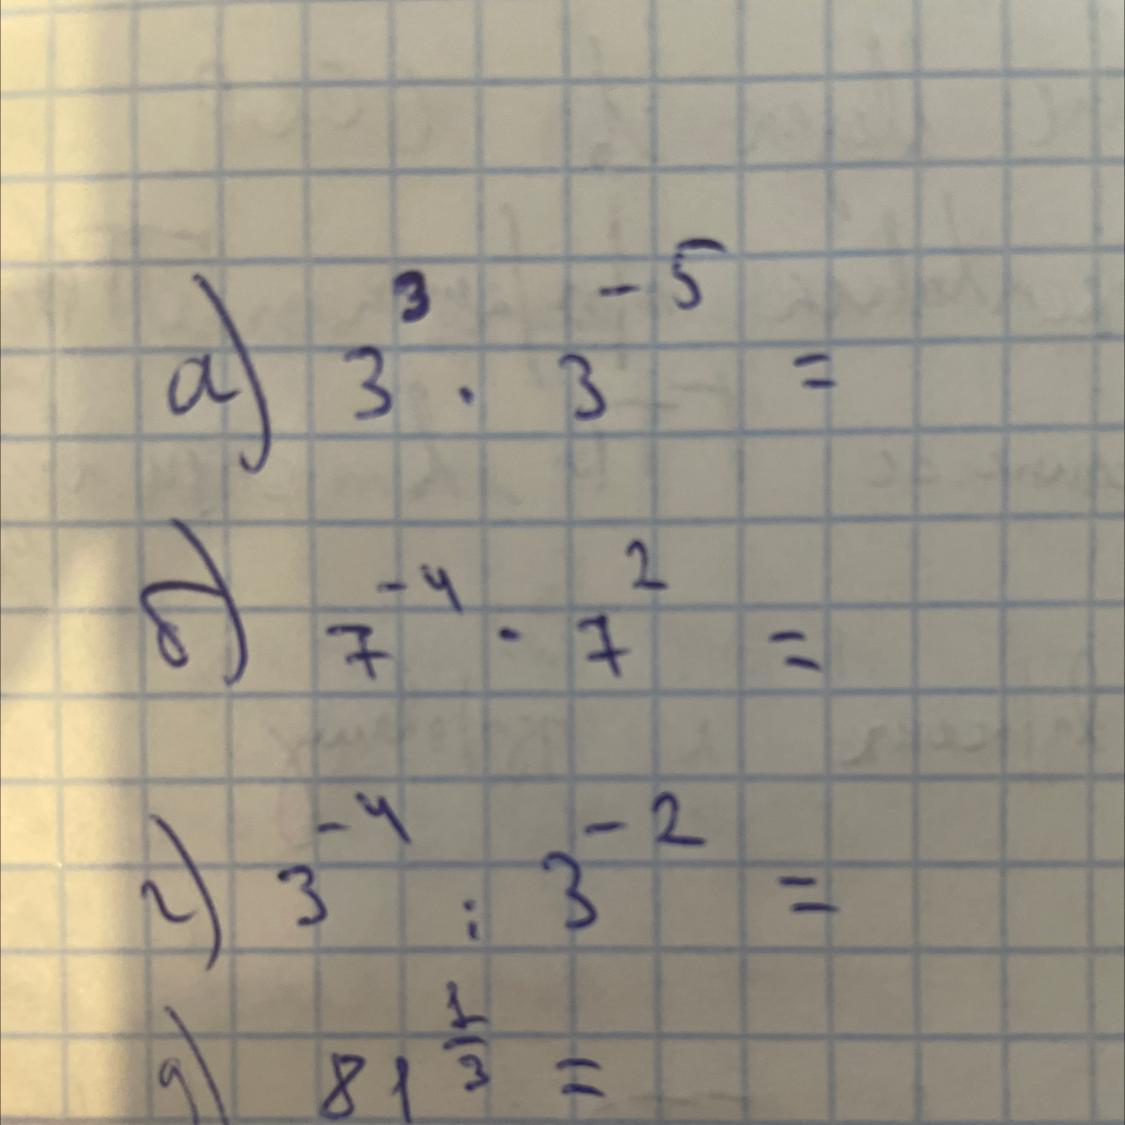 а) 3³ · 3⁻⁵ =
б) 7⁻⁴ · 7² =
г) 3⁻⁴ : 3⁻² =
д) 81^(1/3) =